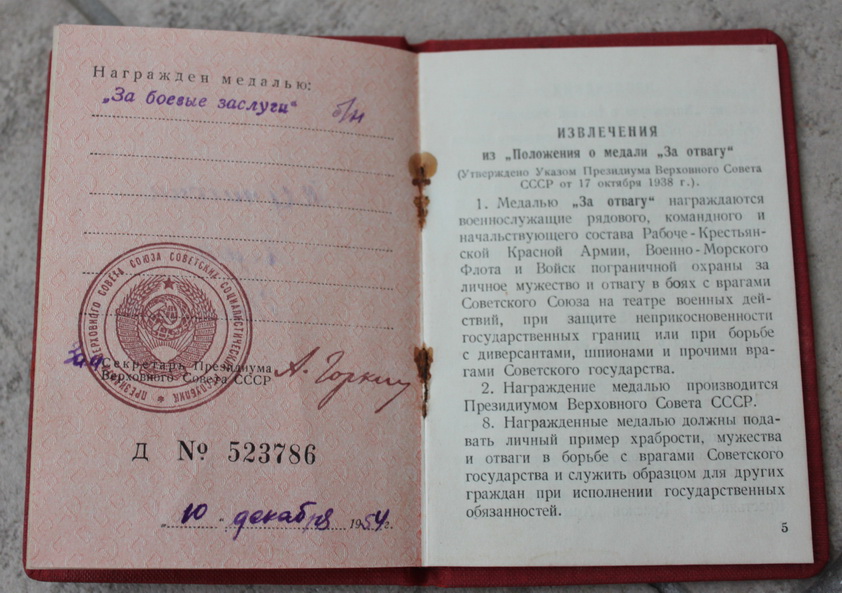 Награжден медалью:
„За боевые заслуги“ б/н
ПРЕЗИДИУМ ВЕРХОВНОГО СОВЕТА СОЮЗА СОВЕТСКИХ СОЦИАЛИСТИЧЕСКИХ РЕСПУБЛИК
Секретарь Президиума
Верховного Совета СССР
А. Горкин
Д № 523786
„10“ декабря 1954 г.
ИЗВЛЕЧЕНИЯ
из „Положения о медали „За отвагу“
(Утверждено Указом Президиума Верховного Совета
СССР от 17 октября 1938 г.).
1. Медалью „За отвагу“ награждаются
военнослужащие рядового, командного и
начальствующего состава Рабоче-Крестьян-
ской Красной Армии, Военно-Морского
Флота и Войск пограничной охраны за
личное мужество и отвагу в боях с врагами
Советского Союза на театре военных дей-
ствий, при защите неприкосновенности
государственных границ или при борьбе
с диверсантами, шпионами и прочими вра-
гами Советского государства.
2. Награждение медалью производится
Президиумом Верховного Совета СССР.
8. Награжденные медалью должны пода-
вать личный пример храбрости, мужества
и отваги в борьбе с врагами Советского
государства и служить образцом для других
граждан при исполнении государственных
обязанностей.
5